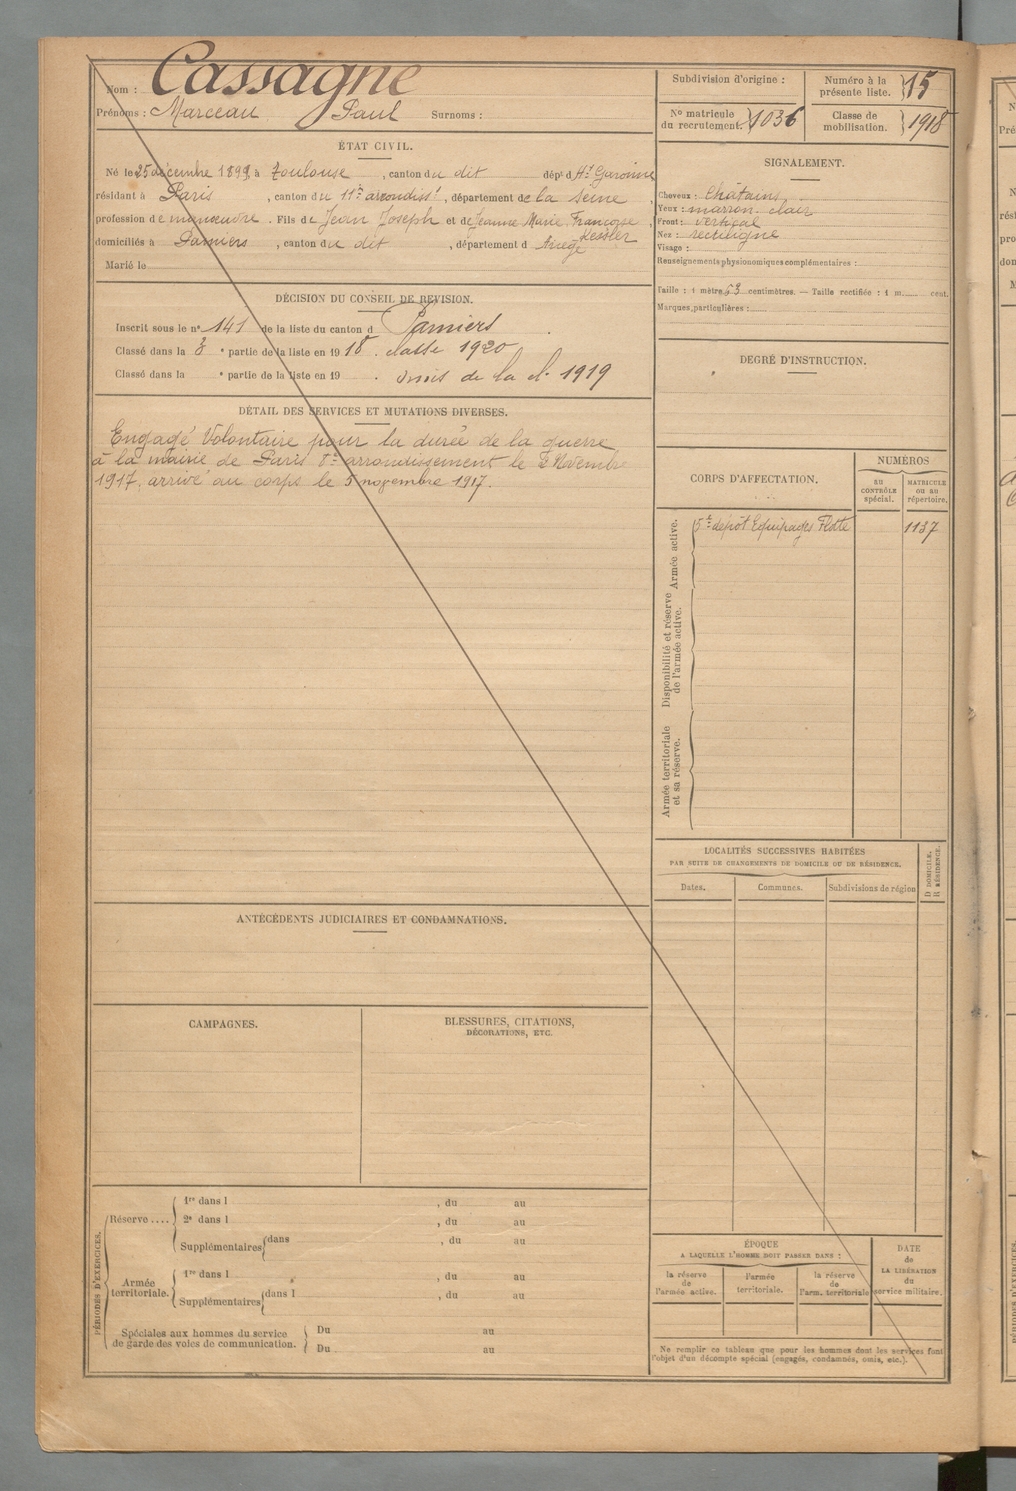 Nom : Cassagne
Prénoms : Marceau Paul Surnoms :
ÉTAT CIVIL.
Né le 25 décembre 1899, à Toulouse, canton du dit dépt d Hte Garonne
résidant à Paris, canton du 11e arrondisst, département de la Seine,
profession de manœuvre. Fils de Jean Joseph et de Jeanne Marie Françoise Kessler,
domiciliés à Pamiers, canton du dit, département d Ariège
Marié le
DÉCISION DU CONSEIL DE REVISION.
Inscrit sous le n° 141 de la liste du canton d Pamiers.
Classé dans la 3 e partie de la liste en 1918. classe 1920
Classé dans la e partie de la liste en 19 . omis de la cl. 1919
DÉTAIL DES SERVICES ET MUTATIONS DIVERSES.
Engagé Volontaire pour la durée de la guerre
à la mairie de Paris 8e arrondissement le Novembre
1917, arrivé au corps le 5 novembre 1917.
ANTÉCÉDENTS JUDICIAIRES ET CONDAMNATIONS.
CAMPAGNES.
BLESSURES, CITATIONS,
DÉCORATIONS, ETC.
PÉRIODES D'EXERCICES.
Réserve ....
1re dans l , du au
2e dans l , du au
Supplémentaires dans , du au
Armée
territoriale.
1re dans l , du au
Supplémentaires dans l , du au
Spéciales aux hommes du service
de garde des voies de communication.
Du au
Du au
Subdivision d'origine :
Numéro à la
présente liste. 15
N° matricule
du recrutement. 1036
Classe de
mobilisation. 1918
SIGNALEMENT.
Cheveux : Châtains
Yeux : marron clair
Front : vertical
Nez : rectiligne
Visage :
Renseignements physionomiques complémentaires :
Taille : 1 mètre 53 centimètres. — Taille rectifiée : 1 m. cent.
Marques particulières :
DEGRÉ D'INSTRUCTION.
CORPS D'AFFECTATION.
NUMÉROS
AU
CONTRÔLE
spécial.
MATRICULE
OU AU
répertoire.
Armée active.
5e dépôt Equipages Flotte 1137
Disponibilité et réserve
de l'armée active.
Armée territoriale
et sa réserve.
LOCALITÉS SUCCESSIVES HABITÉES
PAR SUITE DE CHANGEMENTS DE DOMICILE OU DE RÉSIDENCE.
Dates.
Communes.
Subdivisions de région
D DOMICILE.
R RÉSIDENCE.
ÉPOQUE
A LAQUELLE L'HOMME DOIT PASSER DANS :
la réserve
de
l'armée active.
l'armée
territoriale.
la réserve
de
l'arm. territoriale
DATE
de
LA LIBÉRATION
du
service militaire.
Ne remplir ce tableau que pour les hommes dont les services font
l'objet d'un décompte spécial (engagés, condamnés, omis, etc.).